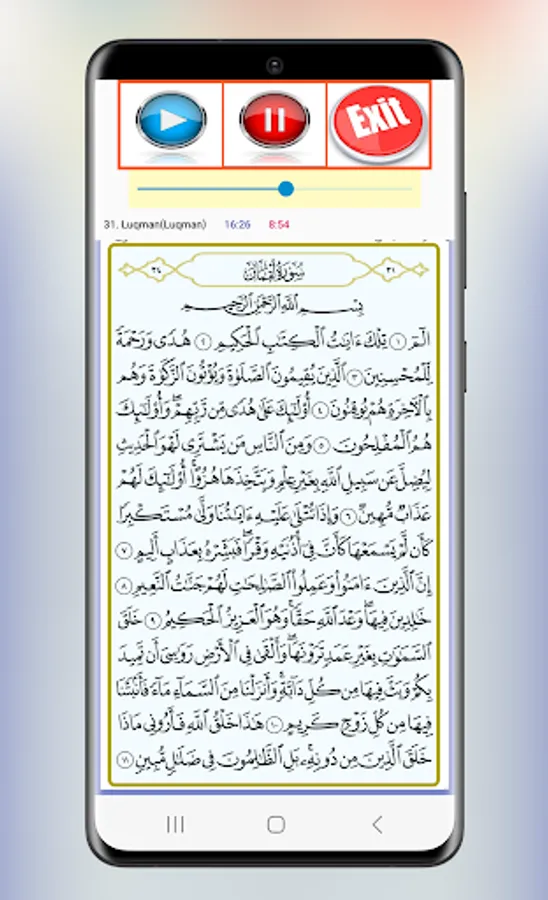 Exit
31. Luqman(Luqman) 16:26 8:54
٣٤ سُورَةُ لُقْمَانَ ٣١
بِسْمِ اللَّهِ الرَّحْمَٰنِ الرَّحِيمِ
الٓمٓ ١ تِلْكَ ءَايَٰتُ ٱلْكِتَٰبِ ٱلْحَكِيمِ ٢ هُدًى وَرَحْمَةً
لِّلْمُحْسِنِينَ ٣ ٱلَّذِينَ يُقِيمُونَ ٱلصَّلَوٰةَ وَيُؤْتُونَ ٱلزَّكَوٰةَ وَهُم
بِٱلْءَاخِرَةِ هُمْ يُوقِنُونَ ٤ أُو۟لَٰٓئِكَ عَلَىٰ هُدًى مِّن رَّبِّهِمْ ۖ وَأُو۟لَٰٓئِكَ
هُمُ ٱلْمُفْلِحُونَ ٥ وَمِنَ ٱلنَّاسِ مَن يَشْتَرِى لَهْوَ ٱلْحَدِيثِ
لِيُضِلَّ عَن سَبِيلِ ٱللَّهِ بِغَيْرِ عِلْمٍ وَيَتَّخِذَهَا هُزُوًا ۚ أُو۟لَٰٓئِكَ لَهُمْ
عَذَابٌ مُّهِينٌ ٦ وَإِذَا تُتْلَىٰ عَلَيْهِ ءَايَٰتُنَا وَلَّىٰ مُسْتَكْبِرًا
كَأَن لَّمْ يَسْمَعْهَا كَأَنَّ فِىٓ أُذُنَيْهِ وَقْرًا ۖ فَبَشِّرْهُ بِعَذَابٍ أَلِيمٍ ٧
إِنَّ ٱلَّذِينَ ءَامَنُوا۟ وَعَمِلُوا۟ ٱلصَّٰلِحَٰتِ لَهُمْ جَنَّٰتُ ٱلنَّعِيمِ ٨
خَٰلِدِينَ فِيهَا ۖ وَعْدَ ٱللَّهِ حَقًّا ۚ وَهُوَ ٱلْعَزِيزُ ٱلْحَكِيمُ ٩ خَلَقَ
ٱلسَّمَٰوَٰتِ بِغَيْرِ عَمَدٍ تَرَوْنَهَا ۖ وَأَلْقَىٰ فِى ٱلْأَرْضِ رَوَٰسِىَ أَن تَمِيدَ
بِكُمْ وَبَثَّ فِيهَا مِن كُلِّ دَآبَّةٍ ۚ وَأَنزَلْنَا مِنَ ٱلسَّمَآءِ مَآءً فَأَنۢبَتْنَا
فِيهَا مِن كُلِّ زَوْجٍ كَرِيمٍ ١٠ هَٰذَا خَلْقُ ٱللَّهِ فَأَرُونِى مَاذَا
خَلَقَ ٱلَّذِينَ مِن دُونِهِۦ ۚ بَلِ ٱلظَّٰلِمُونَ فِى ضَلَٰلٍ مُّبِينٍ ١١